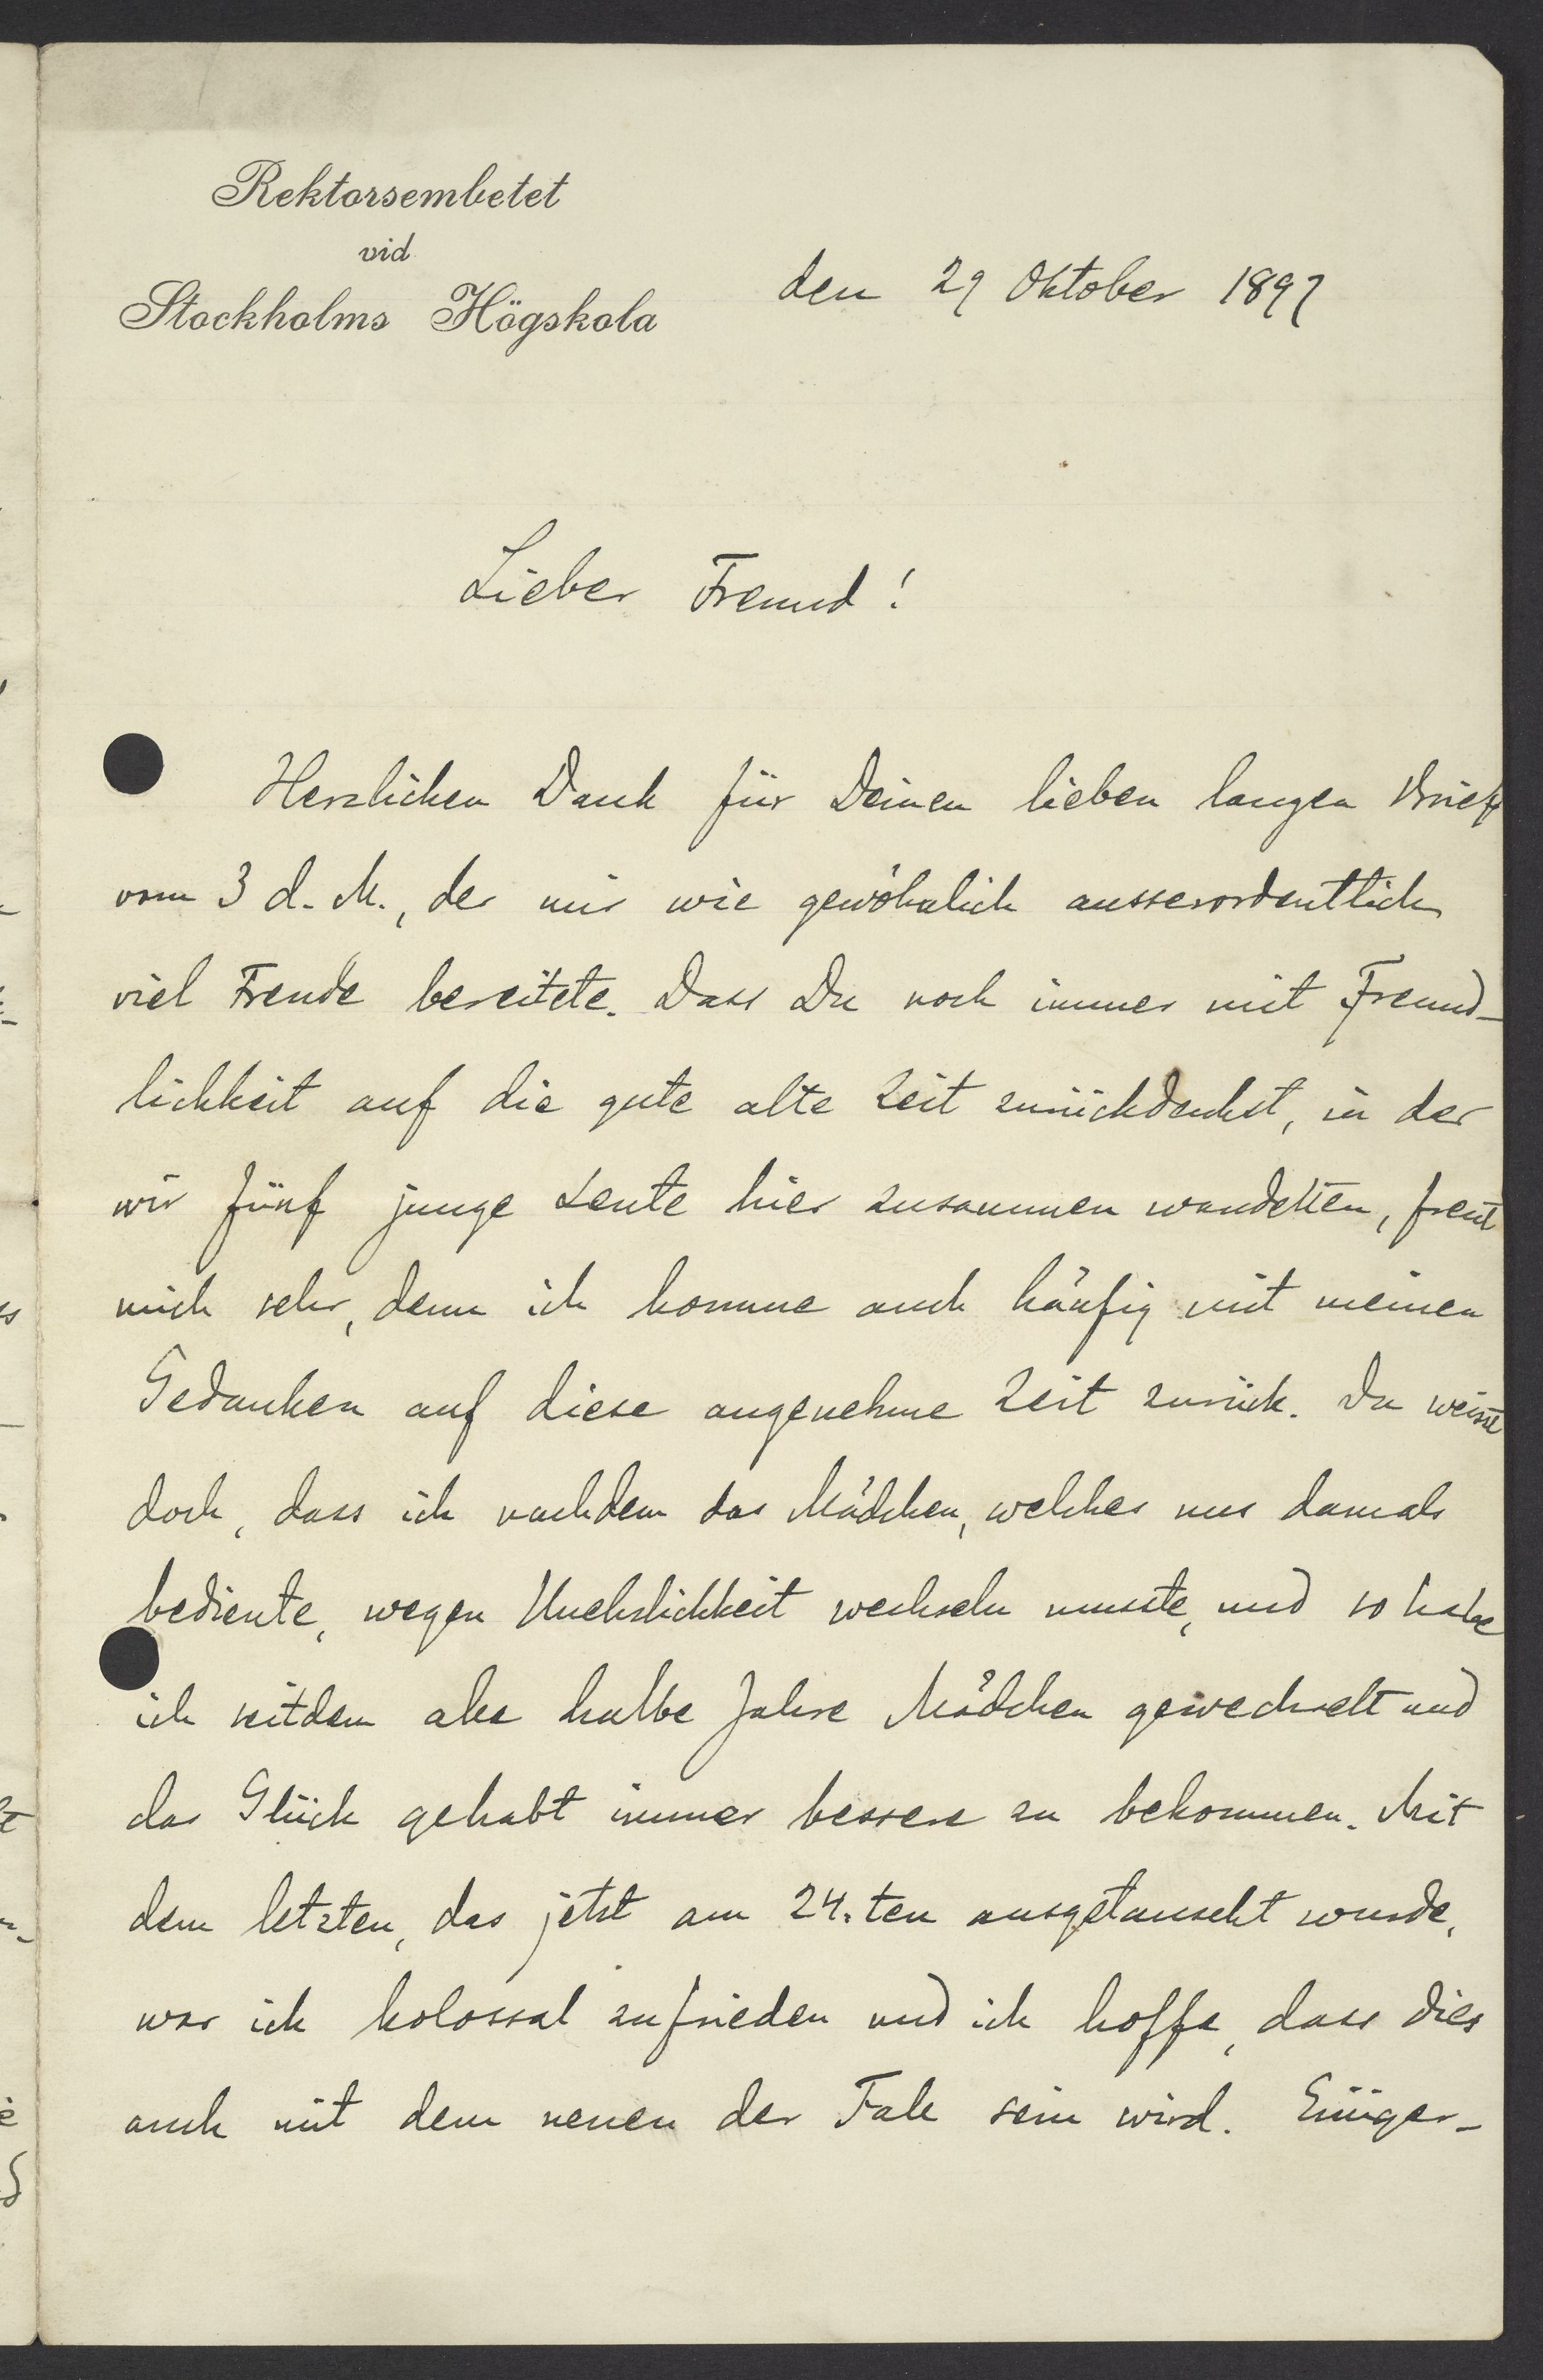 Rektorsembetet
vid
Stockholms Högskola
den 29 Oktober 1897
Lieber Freund!
Herzlichen Dank für Deinen lieben langen Brief
vom 3 d. M., der mir wie gewöhnlich ausserordentlich
viel Freude bereitete. Dass Du noch immer mit Freund-
lichkeit auf die gute alte Zeit zurückdenkst, in der
wir fünf junge Leute hier zusammen wandelten, freut
mich sehr, denn ich komme auch häufig mit meinen
Gedanken auf diese angenehme Zeit zurück. Du weisst
doch, dass ich nachdem das Mädchen, welches uns damals
bediente, wegen Unehrlichkeit wechseln musste, und so habe
ich seitdem alle halbe Jahre Mädchen gewechselt und
das Glück gehabt immer bessere zu bekommen. Mit
dem letzten, das jetzt am 24.ten ausgetauscht wurde,
war ich kolossal zufrieden und ich hoffe, dass dies
auch mit dem neuen der Fall sein wird. Einiger-